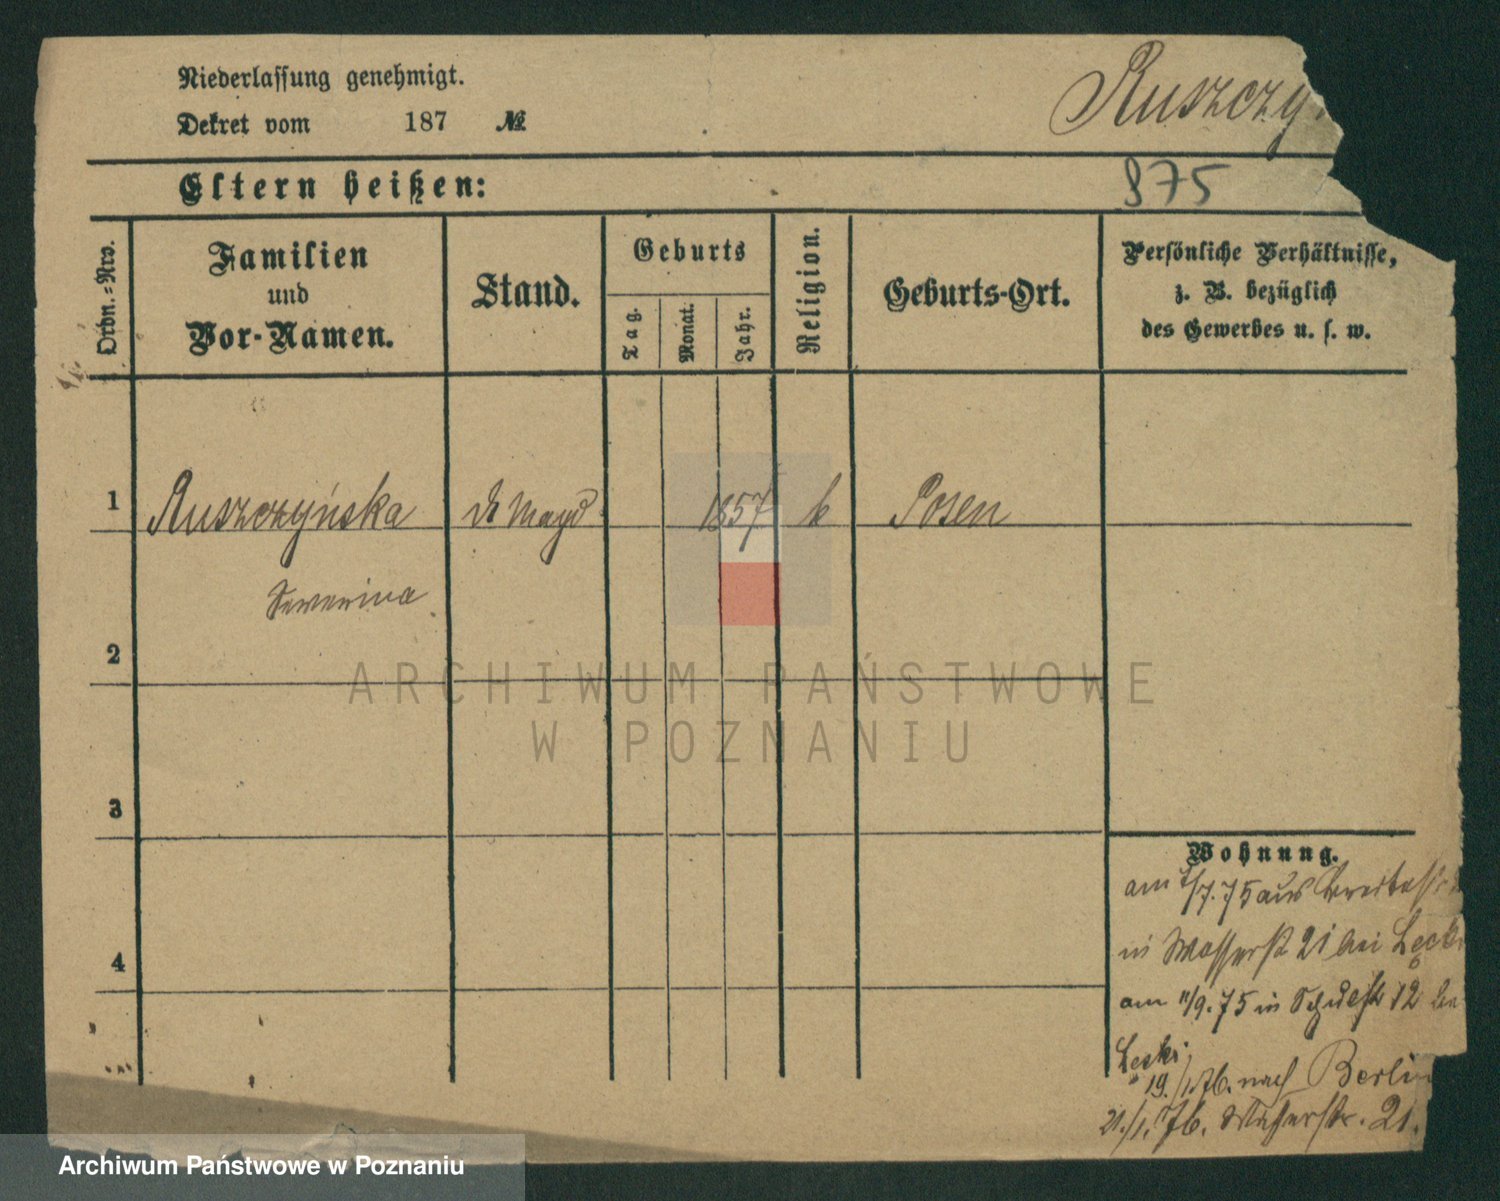 Niederlassung genehmigt.
Ruszczy
Dekret vom 187 №
Eltern heißen:
875
Ordn.-Nro.
Familien
und
Vor-Namen.
Stand.
Geburts
Tag.
Monat.
Jahr.
Religion.
Geburts-Ort.
Persönliche Verhältnisse,
z. B. bezüglich
des Gewerbes u. s. w.
1 Ruszczyńska 1857 k Posen
Severina
2
3
4
ARCHIWUM PAŃSTWOWE
W POZNANIU
Wohnung.
am 1/7.75 aus
in Wasserst 21 bei
am 11/9.75 in 12
Leski
19./1.76. nach Berlin
21./1.76. Wasserstr. 21.
Archiwum Państwowe w Poznaniu